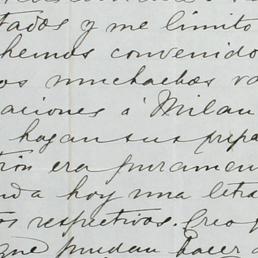 tados y me limito
hemos convenido
os muchachos va
aciones á Milan
hagan sus prepa
era puramen
da hoy una letra
os respectivos. Creo
que puedan hacer